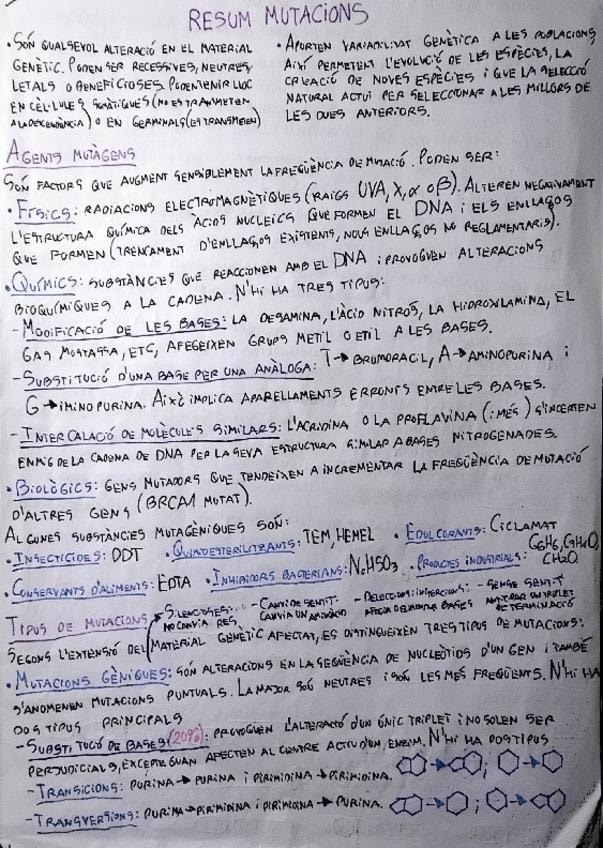 RESUM MUTACIONS
• SÓN QUALSEVOL ALTERACIÓ EN EL MATERIAL
GENÈTIC. PODEN SER RECESSIVES, NEUTRES,
LETALS O BENEFICIOSES. PODEN TENIR LLOC
EN CÈL·LULES SOMÀTIQUES (NO ES TRANSMETEN
A LA DESCENDÈNCIA) O EN GERMINALS (ES TRANSMETEN)
• APORTEN VARIABILITAT GENÈTICA A LES POBLACIONS,
AIXÍ PERMETENT L'EVOLUCIÓ DE LES ESPÈCIES, LA
CREACIÓ DE NOVES ESPÈCIES I QUE LA SELECCIÓ
NATURAL ACTUI PER SELECCIONAR A LES MILLORS DE
LES DUES ANTERIORS.
AGENTS MUTÀGENS
SÓN FACTORS QUE AUGMENT SENSIBLEMENT LA FREQÜÈNCIA DE MUTACIÓ. PODEN SER:
• FÍSICS: RADIACIONS ELECTROMAGNÈTIQUES (RAIGS UVA, X, α O β). ALTEREN NEGATIVAMENT
L'ESTRUCTURA QUÍMICA DELS ÀCIDS NUCLEICS QUE FORMEN EL DNA I ELS ENLLAÇOS
QUE FORMEN (TRENCAMENT D'ENLLAÇOS EXISTENTS, NOUS ENLLAÇOS NO REGLAMENTARIS).
• QUÍMICS: SUBSTÀNCIES QUE REACCIONEN AMB EL DNA I PROVOQUEN ALTERACIONS
BIOQUÍMIQUES A LA CADENA. N'HI HA TRES TIPUS:
- MODIFICACIÓ DE LES BASES: LA DESAMINA, L'ÀCID NITRÓS, LA HIDROXILAMINA, EL
GAS MOSTASSA, ETC, AFEGEIXEN GRUPS METIL O ETIL A LES BASES.
- SUBSTITUCIÓ D'UNA BASE PER UNA ANÀLOGA: T→BROMORACIL, A→AMINOPURINA I
G→IMINO PURINA. AIXÒ IMPLICA APARELLAMENTS ERRONIS ENTRE LES BASES.
- INTERCALACIÓ DE MOLÈCULES SIMILARS: L'ACRIDINA O LA PROFLAVINA (I MÉS) S'INSERTEN
ENMIG DE LA CADENA DE DNA PER LA SEVA ESTRUCTURA SIMILAR A BASES NITROGENADES.
• BIOLÒGICS: GENS MUTADORS QUE TENDEIXEN A INCREMENTAR LA FREQÜÈNCIA DE MUTACIÓ
D'ALTRES GENS (BRCA1 MUTAT).
ALGUNES SUBSTÀNCIES MUTAGÈNIQUES SÓN:
• INSECTICIDES: DDT • QUIMOESTERILITZANTS: TEM, HEMEL • EDULCORANTS: CICLAMAT
• CONSERVANTS D'ALIMENTS: EDTA • INHIBIDORS BACTERIANS: NaHSO3 • PRODUCTES INDUSTRIALS: C6H6, CH2O
TIPUS DE MUTACIONS
→ SILENCIOSES: NO CANVIA RES
- CANVI DE SENTIT: CANVIA UN AMINOÀCID
- DELECCIONS I INSERCIONS: BASES
- SENSE SENTIT
SEGONS L'EXTENSIÓ DEL MATERIAL GENÈTIC AFECTAT, ES DISTINGUEIXEN TRES TIPUS DE MUTACIONS:
• MUTACIONS GÈNIQUES: SÓN ALTERACIONS EN LA SEQÜÈNCIA DE NUCLEÒTIDS D'UN GEN I TAMBÉ
S'ANOMENEN MUTACIONS PUNTUALS. LA MAJOR SÓN NEUTRES I SÓN LES MÉS FREQÜENTS. N'HI HA
DOS TIPUS PRINCIPALS
- SUBSTITUCIÓ DE BASES (20%): PROVOQUEN L'ALTERACIÓ D'UN ÚNIC TRIPLET I NO SOLEN SER
PERJUDICIALS, EXCEPTE QUAN AFECTEN AL CENTRE ACTIU D'UN ENZIM. N'HI HA DOS TIPUS
- TRANSICIONS: PURINA→PURINA I PIRIMIDINA→PIRIMIDINA.
- TRANSVERSIONS: PURINA→PIRIMIDINA I PIRIMIDINA→PURINA.